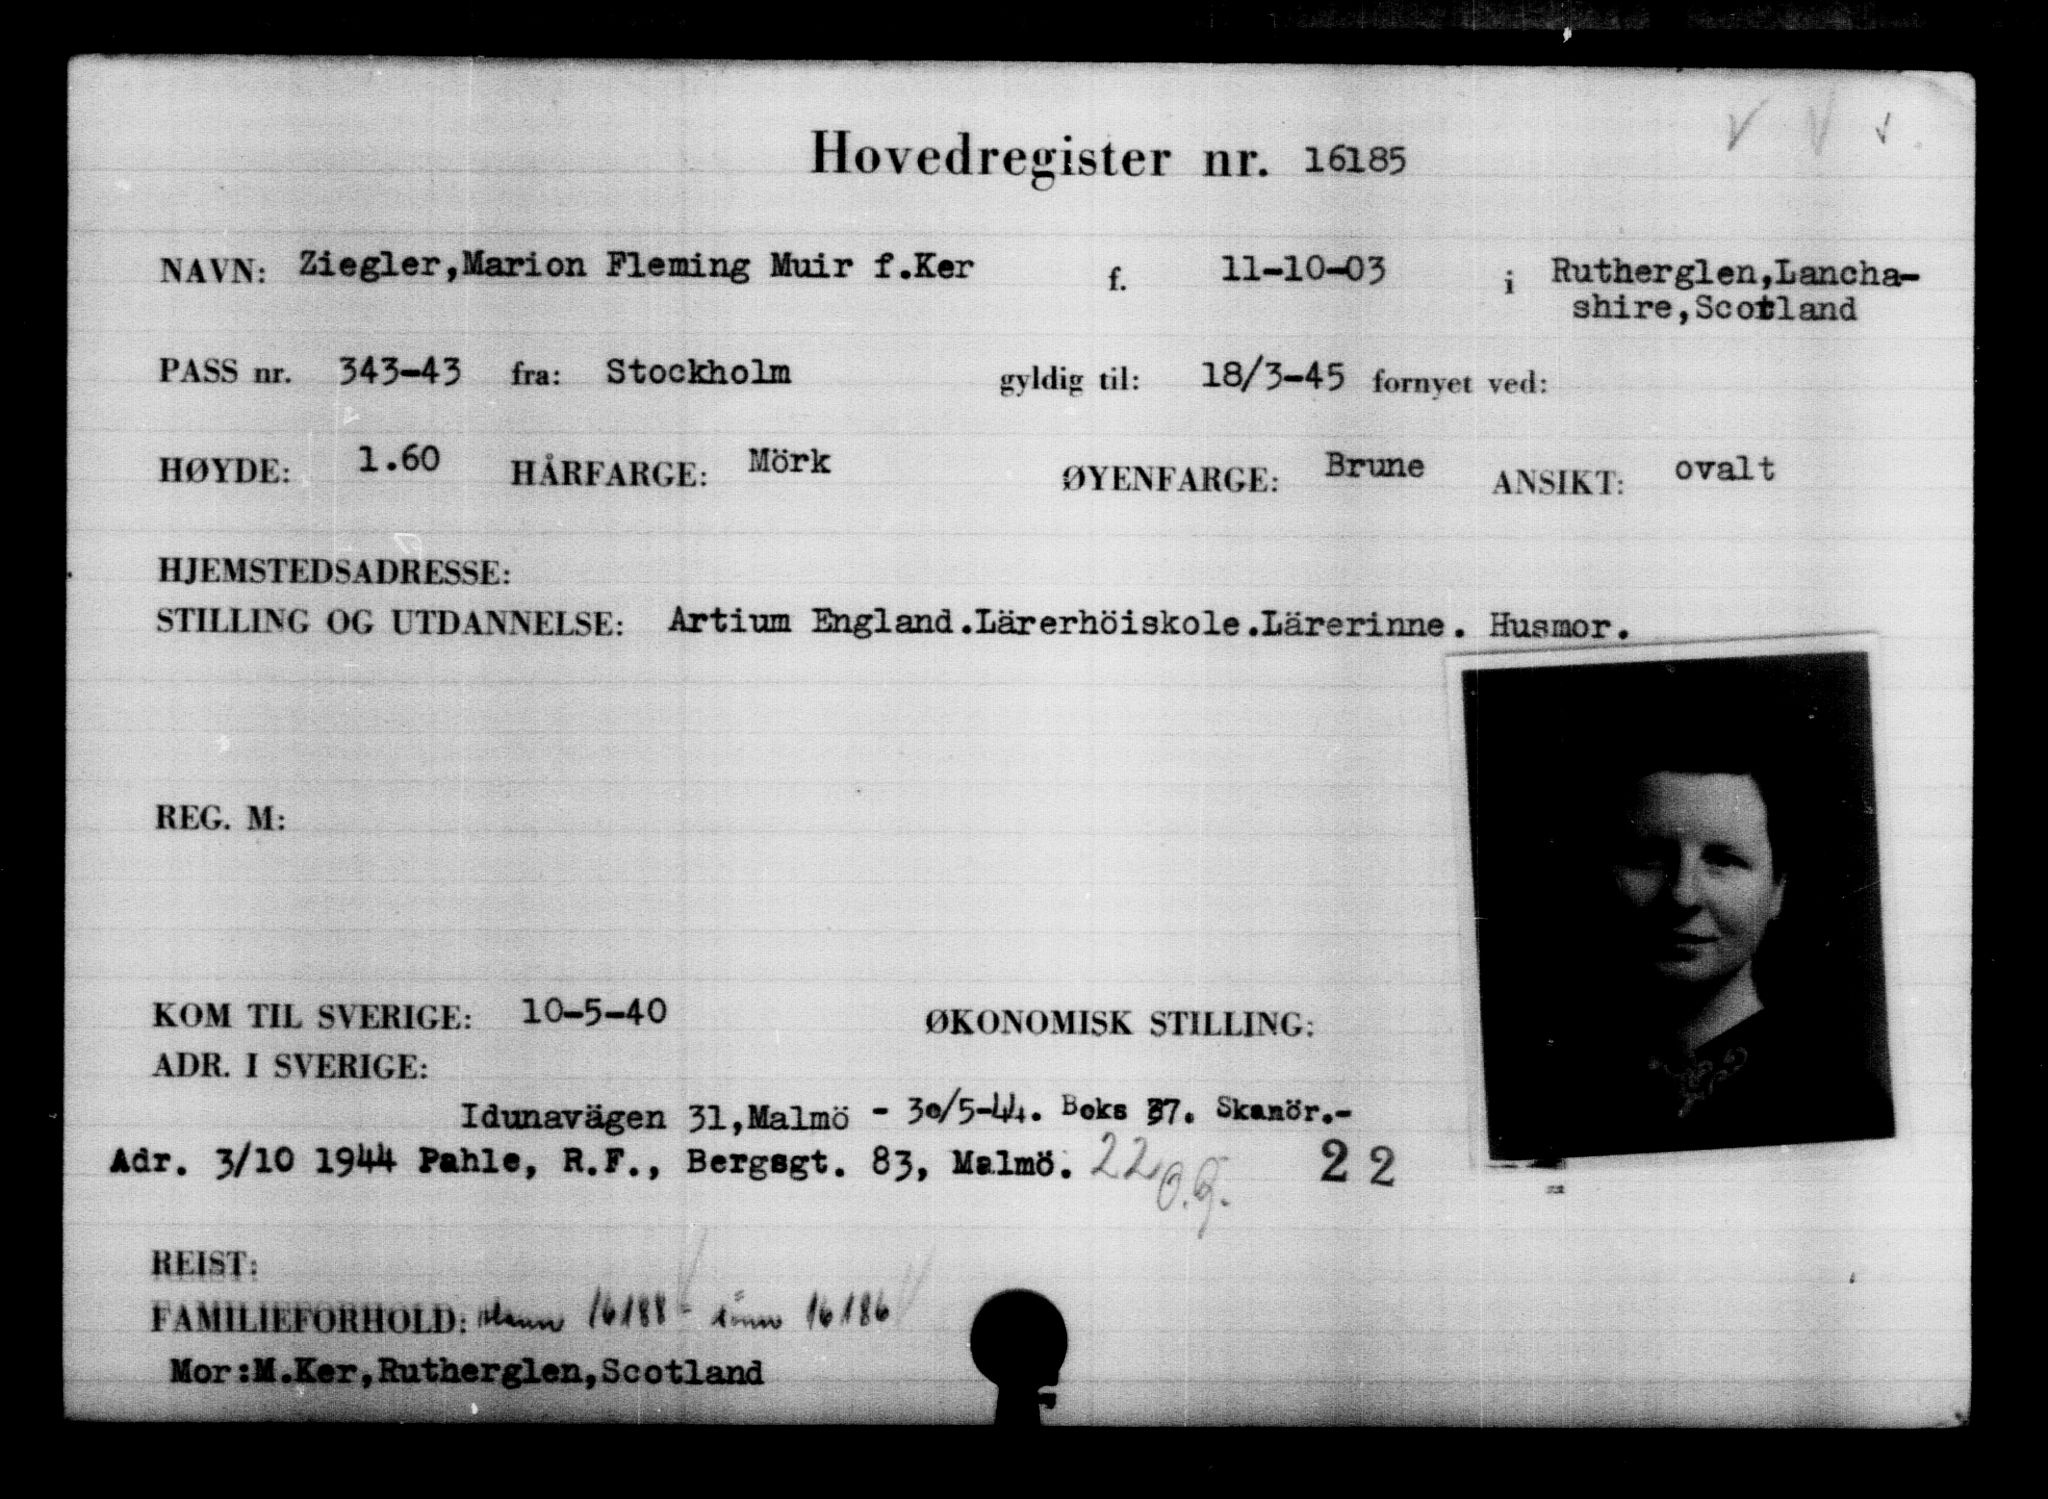 Hovedregister nr. 16185
NAVN: Ziegler,Marion Fleming Muir f.Ker f. 11-10-03 i Rutherglen,Lancha-
shire,Scotland
PASS nr. 343-43 fra: Stockholm gyldig til: 18/3-45 fornyet ved:
HØYDE: 1.60 HÅRFARGE: Mörk ØYENFARGE: Brune ANSIKT: ovalt
HJEMSTEDSADRESSE:
STILLING OG UTDANNELSE: Artium England.Lärerhöiskole.Lärerinne. Husmor.
REG. M:
KOM TIL SVERIGE: 10-5-40 ØKONOMISK STILLING:
ADR. I SVERIGE:
Idunavägen 31,Malmö - 30/5-44. Boks 37. Skanör.-
Adr. 3/10 1944 Pahle, R.F., Bergsgt. 83, Malmö. 22 O.G. 22
REIST:
FAMILIEFORHOLD: Mann 16188 - sönn 16186
Mor:M.Ker,Rutherglen,Scotland